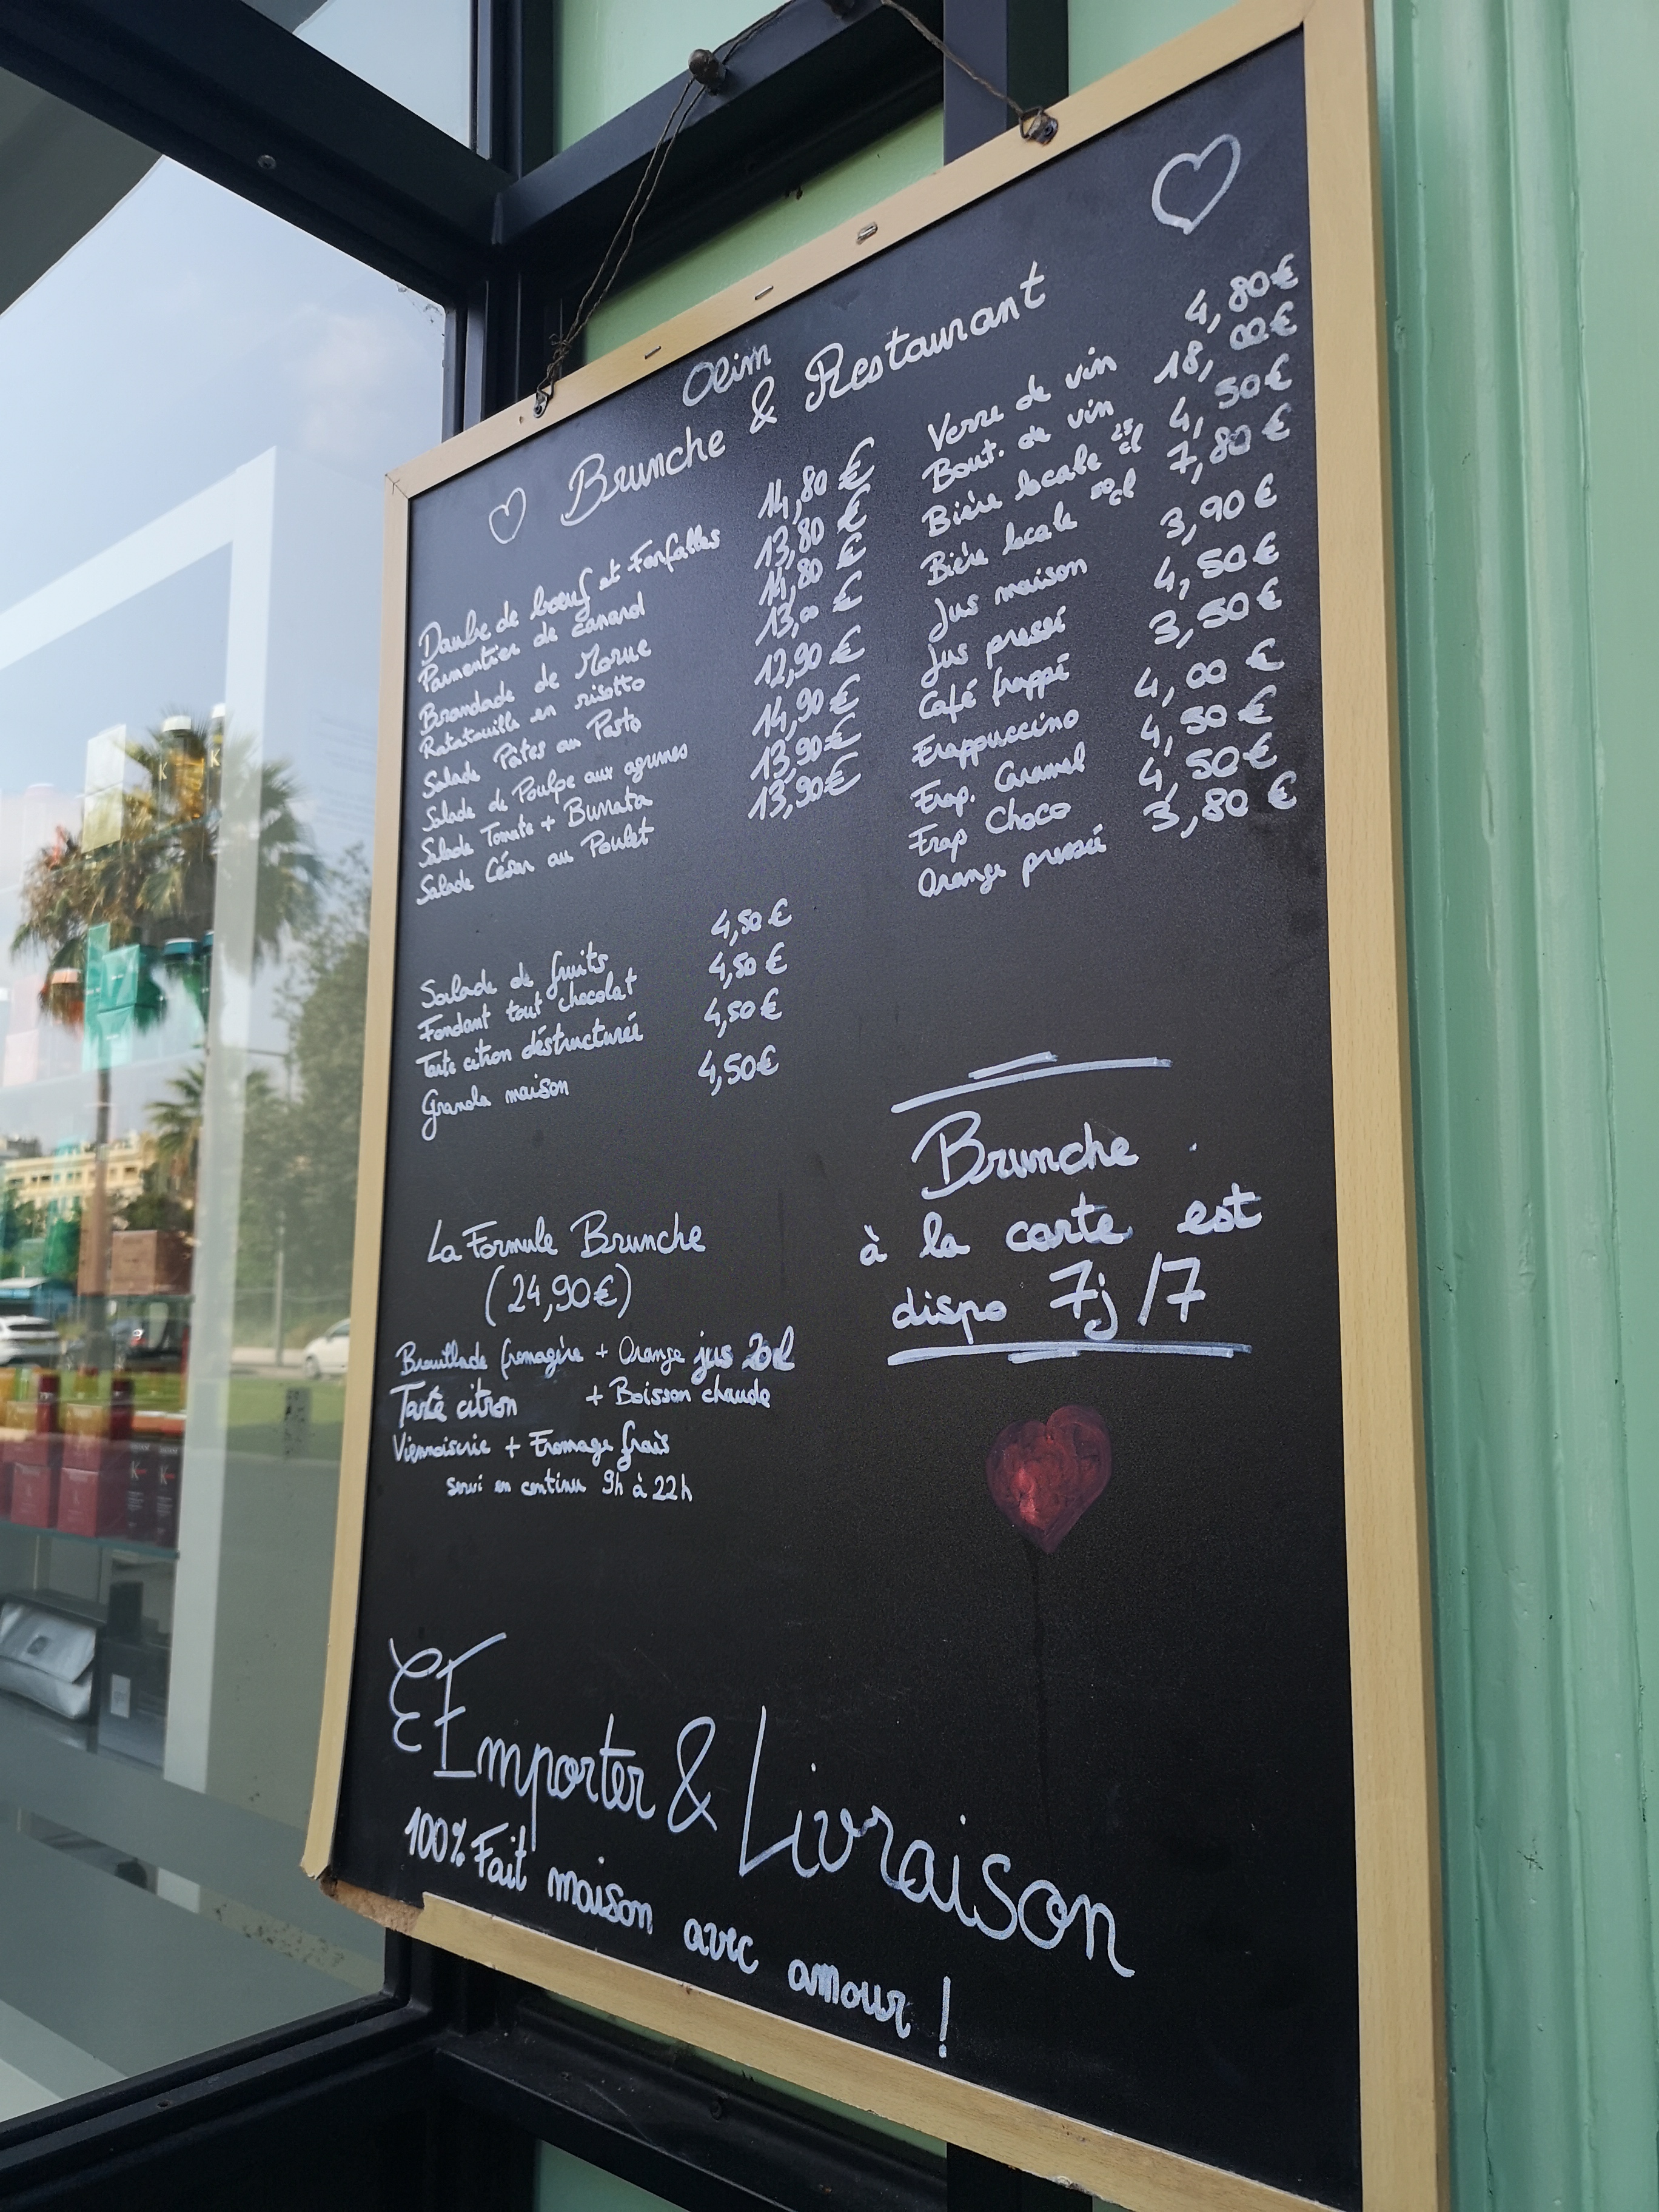 Olim
Brunche & Restaurant
Daube de bœuf et Farfalles 14,80 €
Parmentier de canard 13,80 €
Brandade de Morue 14,80 €
Ratatouille en risotto 13,00 €
Salade Pâtes au Pesto 12,90 €
Salade de Poulpe aux agrumes 14,90 €
Salade Tomate + Burrata 13,90 €
Salade César au Poulet 13,90 €
Salade de fruits 4,50 €
Fondant tout chocolat 4,50 €
Tarte citron déstructurée 4,50 €
Granola maison 4,50 €
La Formule Brunche
(24,90 €)
Brouillade fromagère + Orange jus 20cl
Tarte citron + Boisson chaude
Viennoiserie + Fromage frais
servi en continu 9h à 22h
Verre de vin 4,80 €
Bout. de vin 18,00 €
Bière locale 25 cl 4,50 €
Bière locale 50 cl 7,80 €
Jus maison 3,90 €
Jus pressé 4,50 €
Café frappé 3,50 €
Frappuccino 4,00 €
Frap. Caramel 4,50 €
Frap Choco 4,50 €
Orange pressée 3,80 €
Brunche
à la carte est
dispo 7j/7
Emporter & Livraison
100% Fait maison avec amour !